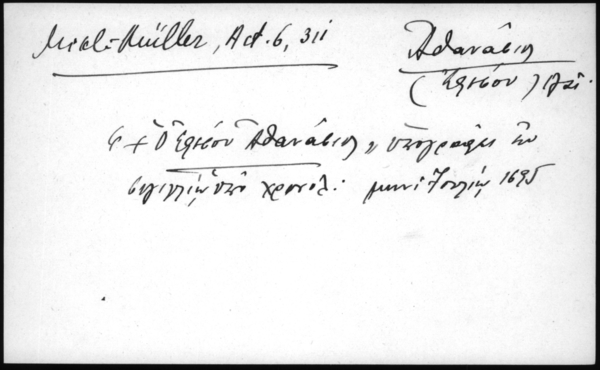 Mikl-Müller, Act. 6, 311
Ἀθανάσιος
(Ἐφέσου)
"+ Ὁ Ἐφέσου Ἀθανάσιος" ὑπογράφει ἐν
σιγιλλίῳ ὑπὸ χρονολ: μηνὶ Ἰουλίῳ 1695